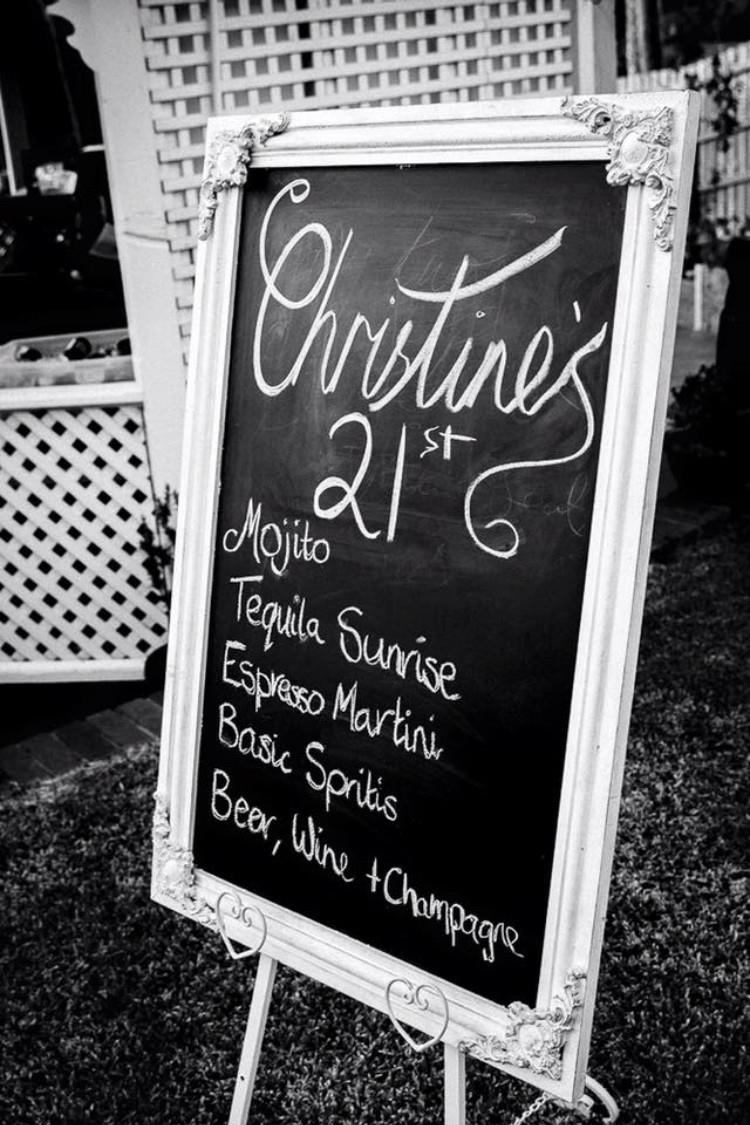 Christine's
21st
Mojito
Tequila Sunrise
Espresso Martini
Basic Spritis
Beer, Wine + Champagne